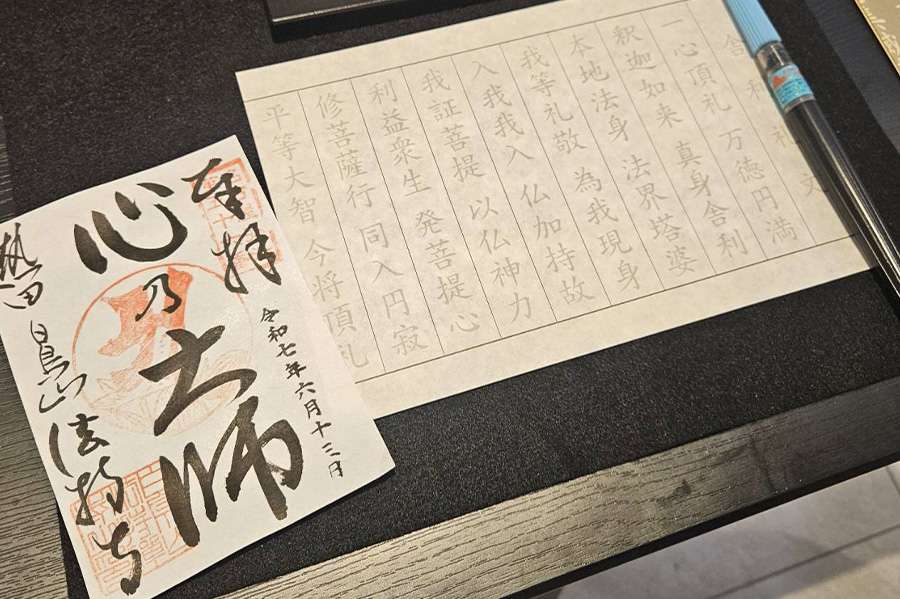 奉拝
心乃大師
令和七年六月十三日
熱田 白鳥山 法持寺
舎利礼文
一心頂礼 万徳円満
釈迦如来 真身舎利
本地法身 法界塔婆
我等礼敬 為我現身
入我我入 仏加持故
我証菩提 以仏神力
利益衆生 発菩提心
修菩薩行 同入円寂
平等大智 今将頂礼